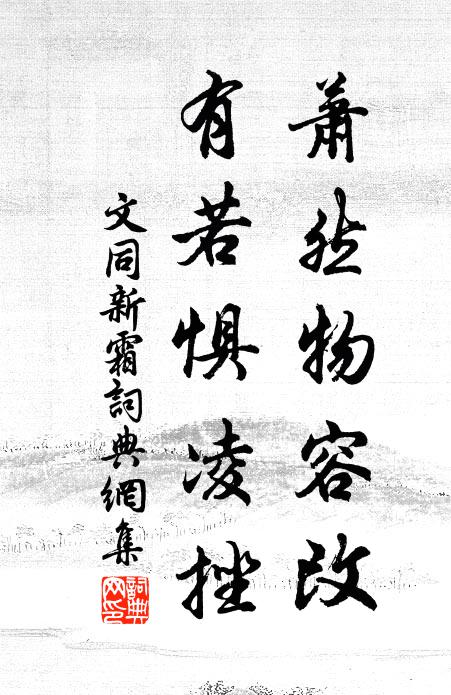 蕭然物容改
有若惧凌挫
文同新霜詞典網集
詞典網印